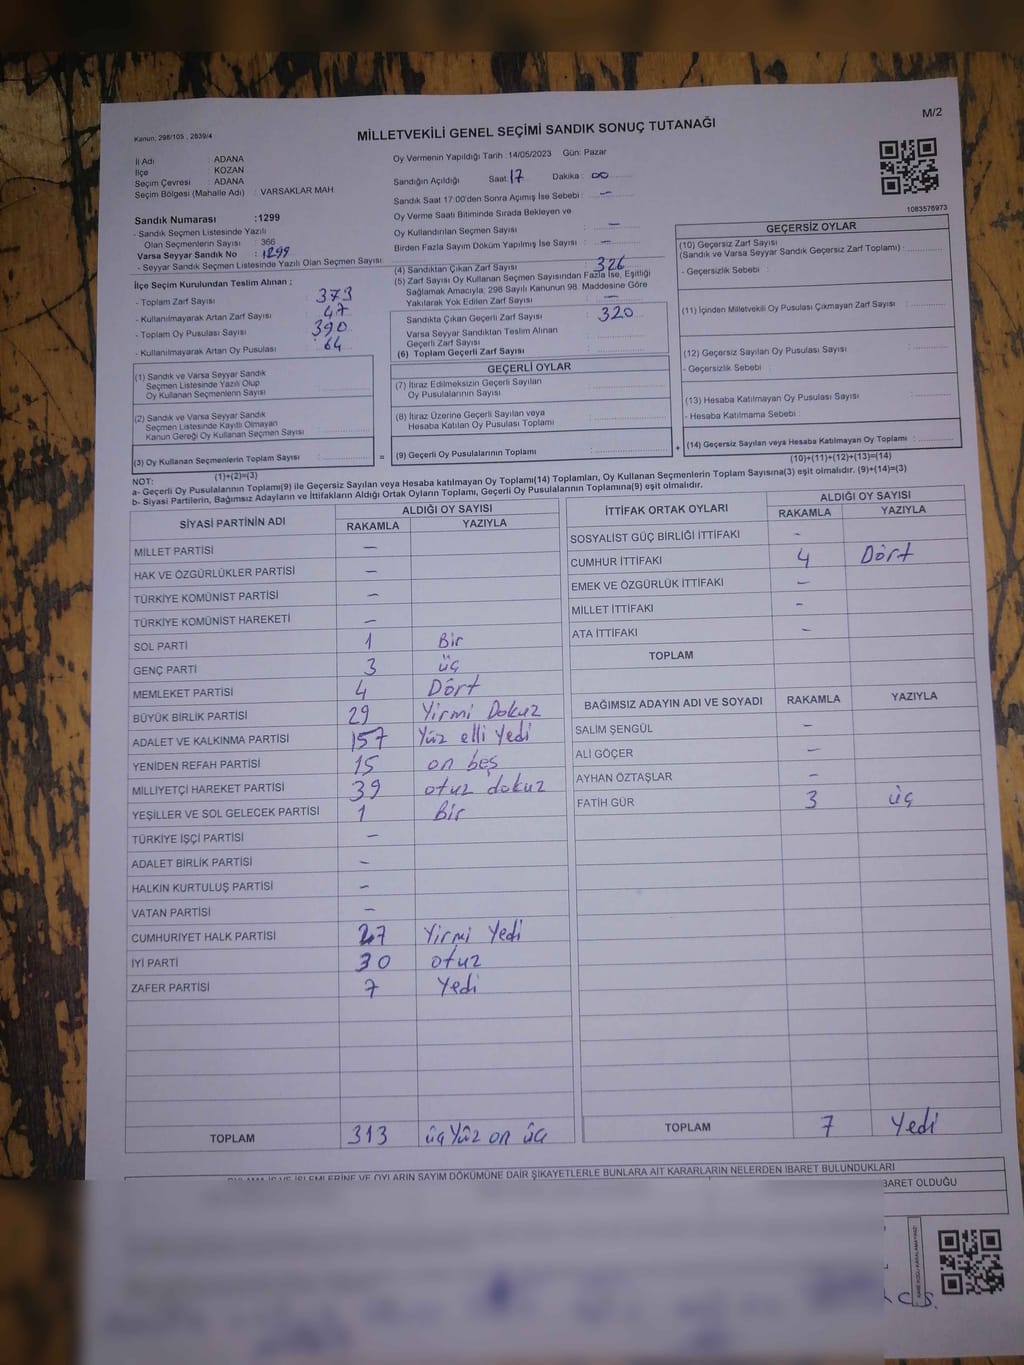 M/2
Kanun: 298/105 , 2839/4
MİLLETVEKİLİ GENEL SEÇİMİ SANDIK SONUÇ TUTANAĞI
İl Adı : ADANA
İlçe : KOZAN
Seçim Çevresi : ADANA
Seçim Bölgesi (Mahalle Adı) : VARSAKLAR MAH.
Sandık Numarası :1299
- Sandık Seçmen Listesinde Yazılı
Olan Seçmenlerin Sayısı : 366
Varsa Seyyar Sandık No : 1299
- Seyyar Sandık Seçmen Listesinde Yazılı Olan Seçmen Sayısı:
İlçe Seçim Kurulundan Teslim Alınan ;
- Toplam Zarf Sayısı : 373
- Kullanılmayarak Artan Zarf Sayısı : 47
- Toplam Oy Pusulası Sayısı : 390
- Kullanılmayarak Artan Oy Pusulası : 64
(1) Sandık ve Varsa Seyyar Sandık
Seçmen Listesinde Yazılı Olup
Oy Kullanan Seçmenlerin Sayısı :
(2) Sandık ve Varsa Seyyar Sandık
Seçmen Listesinde Kayıtlı Olmayan
Kanun Gereği Oy Kullanan Seçmen Sayısı :
(3) Oy Kullanan Seçmenlerin Toplam Sayısı :
(1)+(2)=(3)
Oy Vermenin Yapıldığı Tarih :14/05/2023 Gün: Pazar
Sandığın Açıldığı Saat: 17 Dakika : 00
Sandık Saat 17.00'den Sonra Açımış İse Sebebi : –
Oy Verme Saati Bitiminde Sırada Bekleyen ve
Oy Kullandırılan Seçmen Sayısı : –
Birden Fazla Sayım Döküm Yapılmış İse Sayısı : –
(4) Sandıktan Çıkan Zarf Sayısı : 326
(5) Zarf Sayısı Oy Kullanan Seçmen Sayısından Fazla İse, Eşitliği
Sağlamak Amacıyla, 298 Sayılı Kanunun 98. Maddesine Göre
Yakılarak Yok Edilen Zarf Sayısı : –
Sandıkta Çıkan Geçerli Zarf Sayısı : 320
Varsa Seyyar Sandıktan Teslim Alınan
Geçerli Zarf Sayısı :
(6) Toplam Geçerli Zarf Sayısı :
GEÇERLİ OYLAR
(7) İtiraz Edilmeksizin Geçerli Sayılan
Oy Pusulalarının Sayısı :
(8) İtiraz Üzerine Geçerli Sayılan veya
Hesaba Katılan Oy Pusulası Toplamı :
= (9) Geçerli Oy Pusulalarının Toplamı :
1083576973
GEÇERSİZ OYLAR
(10) Geçersiz Zarf Sayısı
(Sandık ve Varsa Seyyar Sandık Geçersiz Zarf Toplamı) :
- Geçersizlik Sebebi :
(11) İçinden Milletvekili Oy Pusulası Çıkmayan Zarf Sayısı :
(12) Geçersiz Sayılan Oy Pusulası Sayısı :
- Geçersizlik Sebebi :
(13) Hesaba Katılmayan Oy Pusulası Sayısı :
- Hesaba Katılmama Sebebi :
+ (14) Geçersiz Sayılan veya Hesaba Katılmayan Oy Toplamı :
(10)+(11)+(12)+(13)=(14)
NOT:
a- Geçerli Oy Pusulalarının Toplamı(9) ile Geçersiz Sayılan veya Hesaba katılmayan Oy Toplamı(14) Toplamları, Oy Kullanan Seçmenlerin Toplam Sayısına(3) eşit olmalıdır. (9)+(14)=(3)
b- Siyasi Partilerin, Bağımsız Adayların ve İttifakların Aldığı Ortak Oyların Toplamı, Geçerli Oy Pusulalarının Toplamına(9) eşit olmalıdır.
SİYASİ PARTİNİN ADI ALDIĞI OY SAYISI
RAKAMLA YAZIYLA
MİLLET PARTİSİ –
HAK VE ÖZGÜRLÜKLER PARTİSİ –
TÜRKİYE KOMÜNİST PARTİSİ –
TÜRKİYE KOMÜNİST HAREKETİ –
SOL PARTİ 1 Bir
GENÇ PARTİ 3 üç
MEMLEKET PARTİSİ 4 Dört
BÜYÜK BİRLİK PARTİSİ 29 Yirmi Dokuz
ADALET VE KALKINMA PARTİSİ 157 Yüz elli Yedi
YENİDEN REFAH PARTİSİ 15 on beş
MİLLİYETÇİ HAREKET PARTİSİ 39 otuz dokuz
YEŞİLLER VE SOL GELECEK PARTİSİ 1 Bir
TÜRKİYE İŞÇİ PARTİSİ –
ADALET BİRLİK PARTİSİ –
HALKIN KURTULUŞ PARTİSİ –
VATAN PARTİSİ –
CUMHURİYET HALK PARTİSİ 27 Yirmi Yedi
İYİ PARTİ 30 otuz
ZAFER PARTİSİ 7 Yedi
TOPLAM 313 üç Yüz on üç
İTTİFAK ORTAK OYLARI ALDIĞI OY SAYISI
RAKAMLA YAZIYLA
SOSYALİST GÜÇ BİRLİĞİ İTTİFAKI –
CUMHUR İTTİFAKI 4 Dört
EMEK VE ÖZGÜRLÜK İTTİFAKI –
MİLLET İTTİFAKI –
ATA İTTİFAKI –
TOPLAM
BAĞIMSIZ ADAYIN ADI VE SOYADI RAKAMLA YAZIYLA
SALİM ŞENGÜL –
ALİ GÖÇER –
AYHAN ÖZTAŞLAR –
FATİH GÜR 3 üç
TOPLAM 7 Yedi
İŞLEMLERİNE VE OYLARIN SAYIM DÖKÜMÜNE DAİR ŞİKAYETLERLE BUNLARA AİT KARARLARIN NELERDEN İBARET BULUNDUKLARI
BARET OLDUĞU